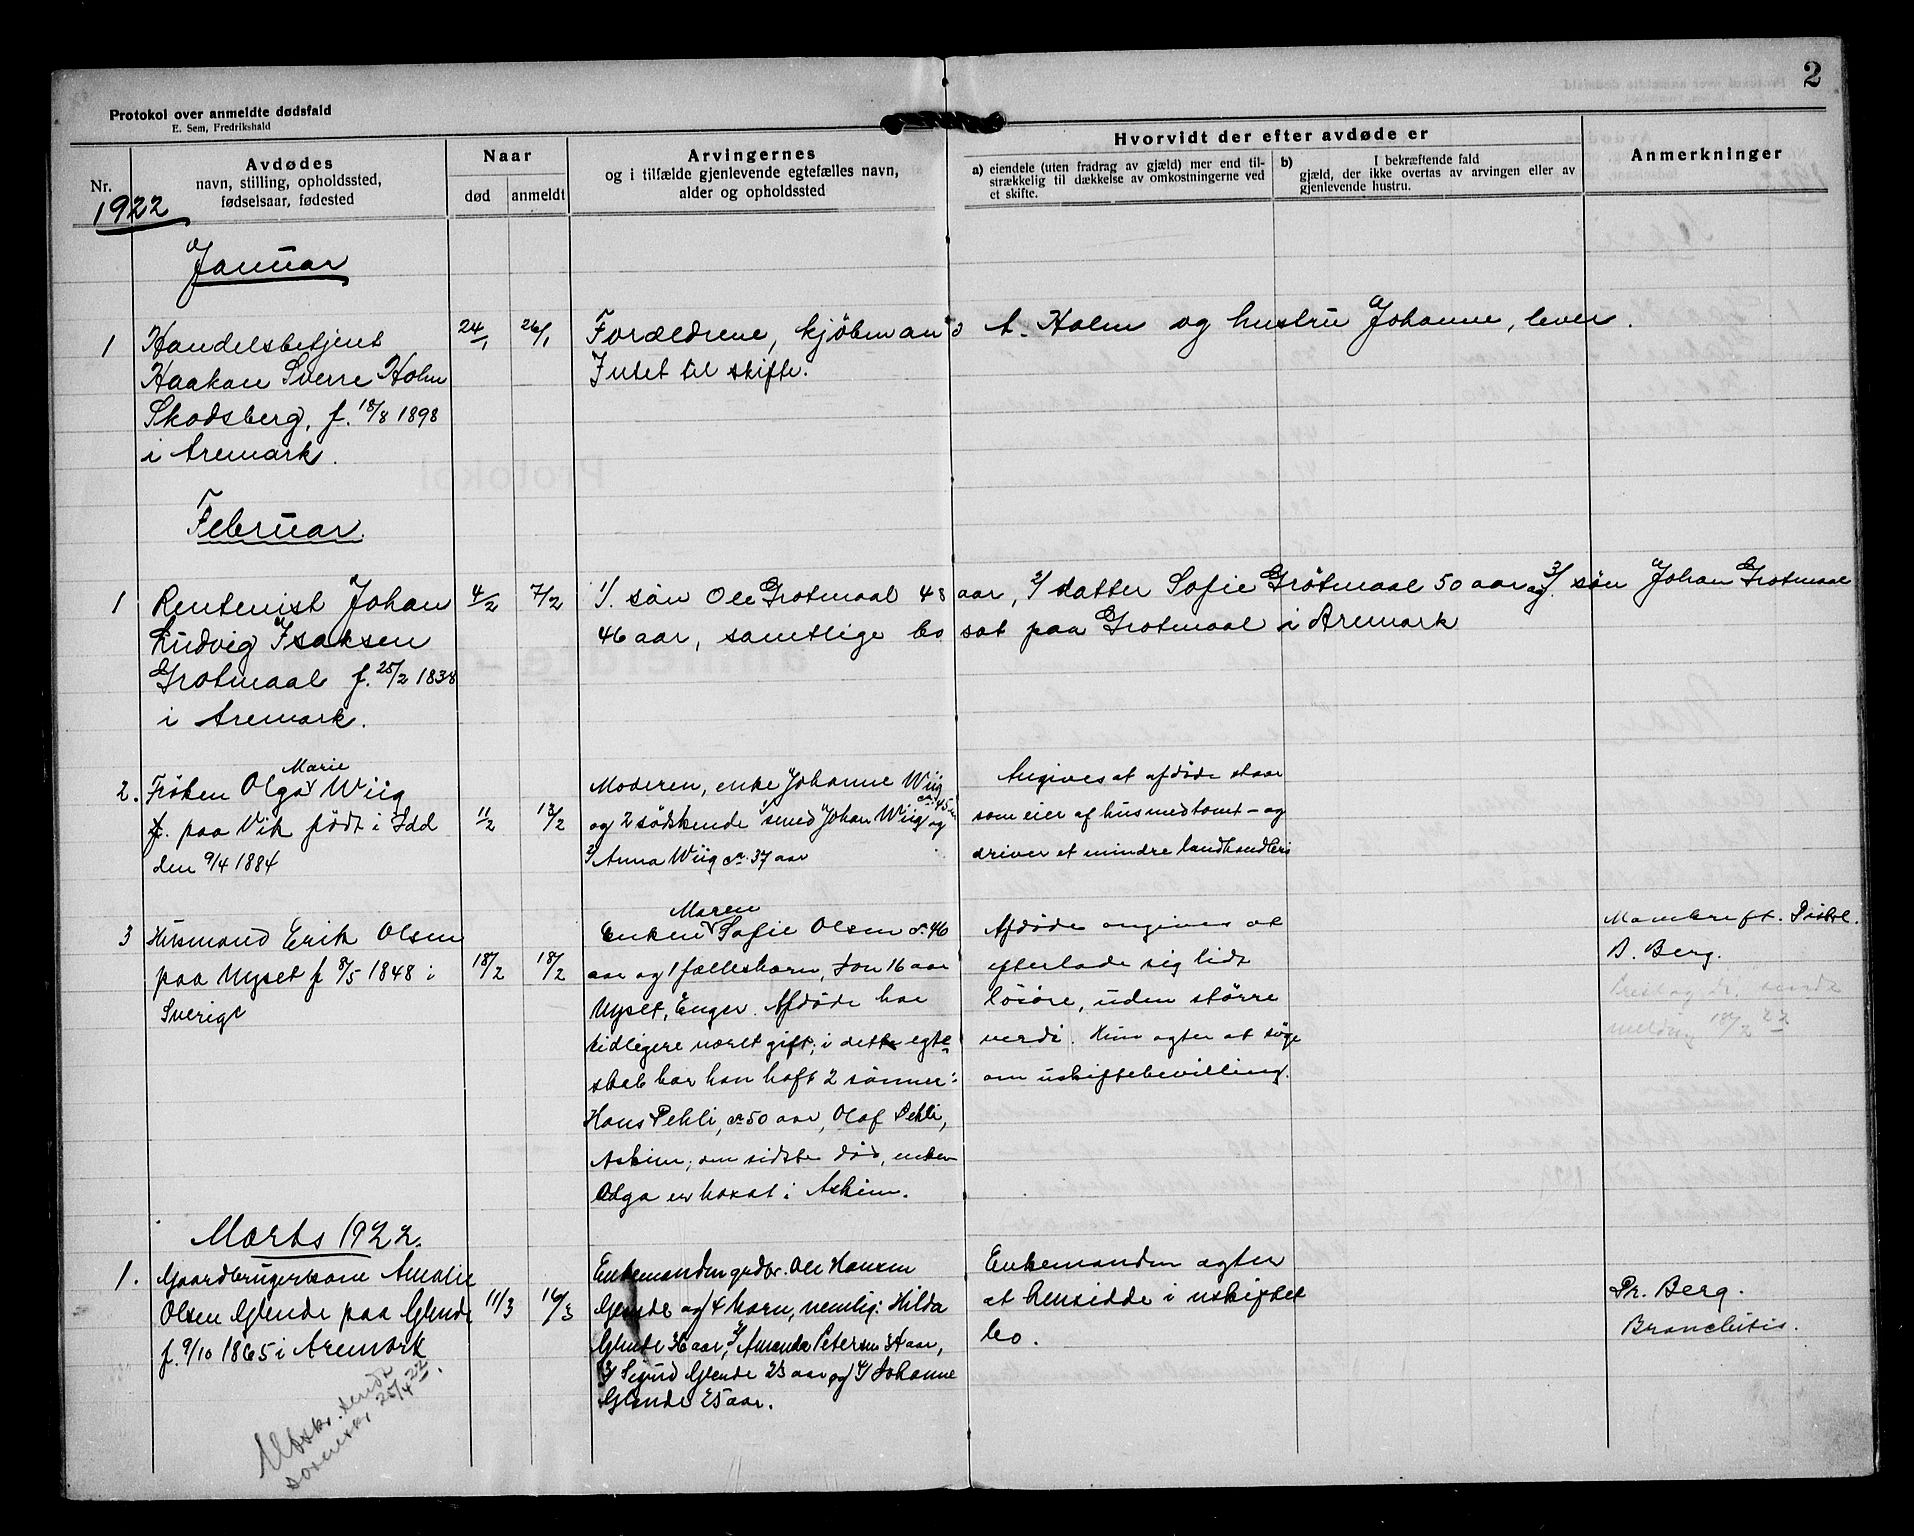 2
Protokol over anmeldte dødsfald
E. Sem, Fredrikshald
Nr.
1922
Avdødes
navn, stilling, opholdssted,
fødselsaar, fødested
Naar
død
anmeldt
Arvingernes
og i tilfælde gjenlevende egtefælles navn,
alder og opholdssted
Hvorvidt der efter avdøde er
a) eiendele (uten fradrag av gjæld) mer end til-
strækkelig til dækkelse av omkostningerne ved
et skifte.
b) I bekræftende fald
gjæld, der ikke overtas av arvingen eller av
gjenlevende hustru.
Anmerkninger
Januar
1
Handelsbetjent
Haakon Sverre Holm
Skodsberg, f. 18/8 1898
i Aremark.
24/1
26/1
Forældrene, kjöbmand A. Holm og hustru Johanne, lever.
Intet til skifte.
Februar
1
Rentenist Johan
Ludvig Isaksen
Grotmaal f. 25/2 1838
i Aremark.
4/2
7/2
1/. sön Ole Grotmaal 48 aar, 2/ datter Sofie Grötmaal 50 aar og 3/. sön Johan Grotmaal
46 aar, samtlige bosat paa Grotmaal i Aremark
2.
Fröken Olga Marie Wiig
paa Vik födt i Idd
den 9/4 1884
11/2
13/2
Moderen, enke Johanne Wiig
og 2 södskende 1/ smed Johan Wiig ca. 45 aar og
2/ Anna Wiig ca. 37 aar
Angives at afdöde staar
som eier af hus med tomt - og
driver et mindre landhandleri
3
Husmand Erik Olsen
paa Nyset f 8/5 1848 i
Sverige
18/2
18/2
Enken Maren Sofie Olsen ca. 46
aar og 1 fællesbarn, Jon 16 aar
Nyset, Enger. Afdöde har
tidligere været gift; i dette egte-
skab har han haft 2 sönner:
Hans Pehli, ca 50 aar, Olaf Pehli,
Askim; den sidste död, enken
Olga er bosat i Askim.
Afdöde angives at
efterlade sig lidt
lösöre, uden större
verdi. Hun agter at söge
om uskiftebevilling.
B. Berg.
meldng 18/2 22
Marts 1922.
1.
Gaardbrugerkone Amalie
Olsen Glende paa Glende
f. 9/10 1865 i Aremark
11/3
16/3
Enkemanden grdbr. Ole Hansen
Glende og 4 barn, nemlig: Hilda
Glende 36 aar, 2/ Amanda Petersen 34 aar,
3/ Sigurd Glende 25 aar og 4/ Johanne
Glende 25 aar.
Enkemanden agter
at hensidde i uskiftet
bo.
Dr. Berg.
Bronchitis.
Utskr. sendt
sorenskr 25/4 22.